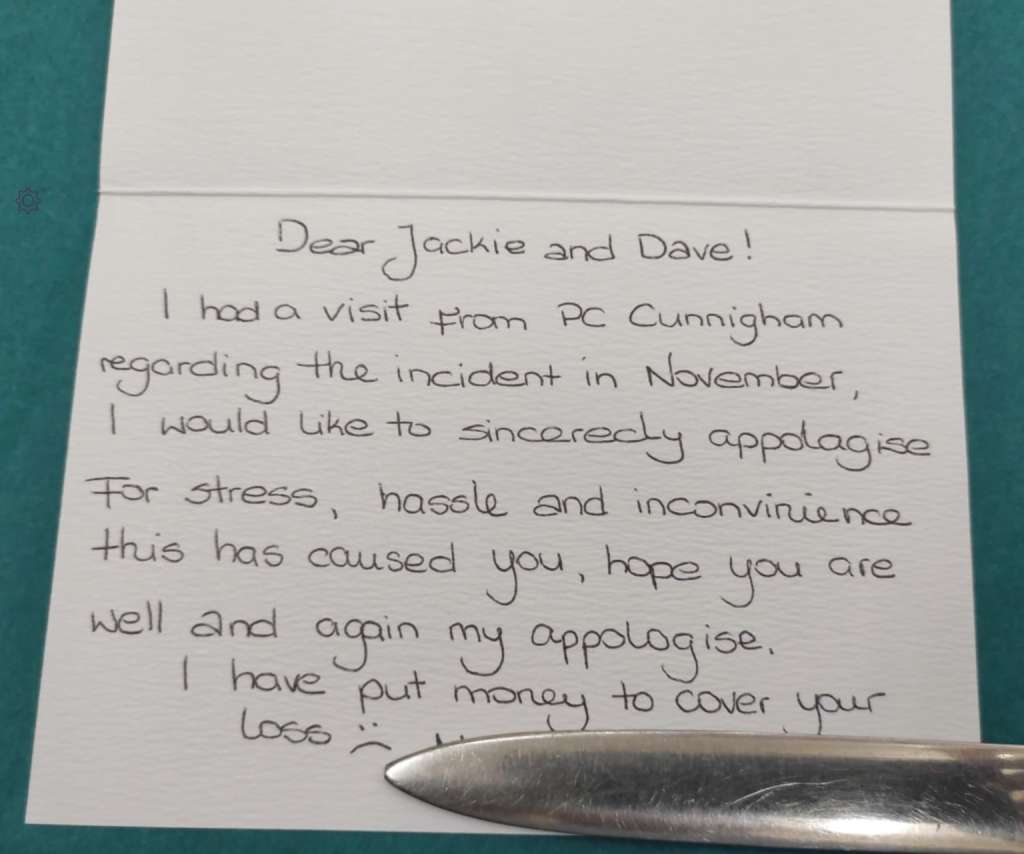 Dear Jackie and Dave!
I had a visit from PC Cunnigham
regarding the incident in November,
I would like to sincerely appolagise
For stress, hassle and inconvinience
this has caused you, hope you are
well and again my appologise.
I have put money to cover your
loss :(